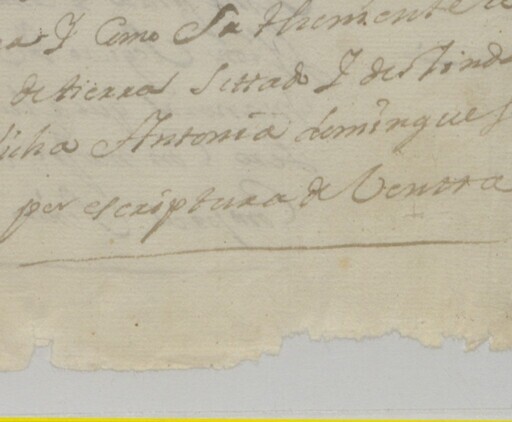 Y Como Su theniente
de tierras Sittado Y deslinda
dicha Antonia domingues
por escriptura de Ventta